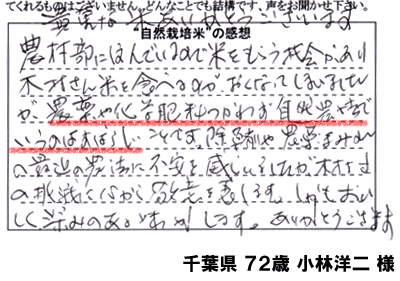 てくれるものはございません。どんなことでも結構です、声をお聞かせ下さい。
貴重な米ありがとうございます
"自然栽培米"の感想
農村部に住んでいるので米をもらう機会があり
木村さん米を食べるのがおそくなってしまいました
が、農薬や化学肥料つかわず自然農法で
いうのはすばらしいことです。除草剤や農薬まみれ
の最近の農法に不安を感じ
の挑戦に心から敬意を表します。しかもおい
しく深みのある味がします。ありがとうございます
千葉県 72歳 小林洋二 様